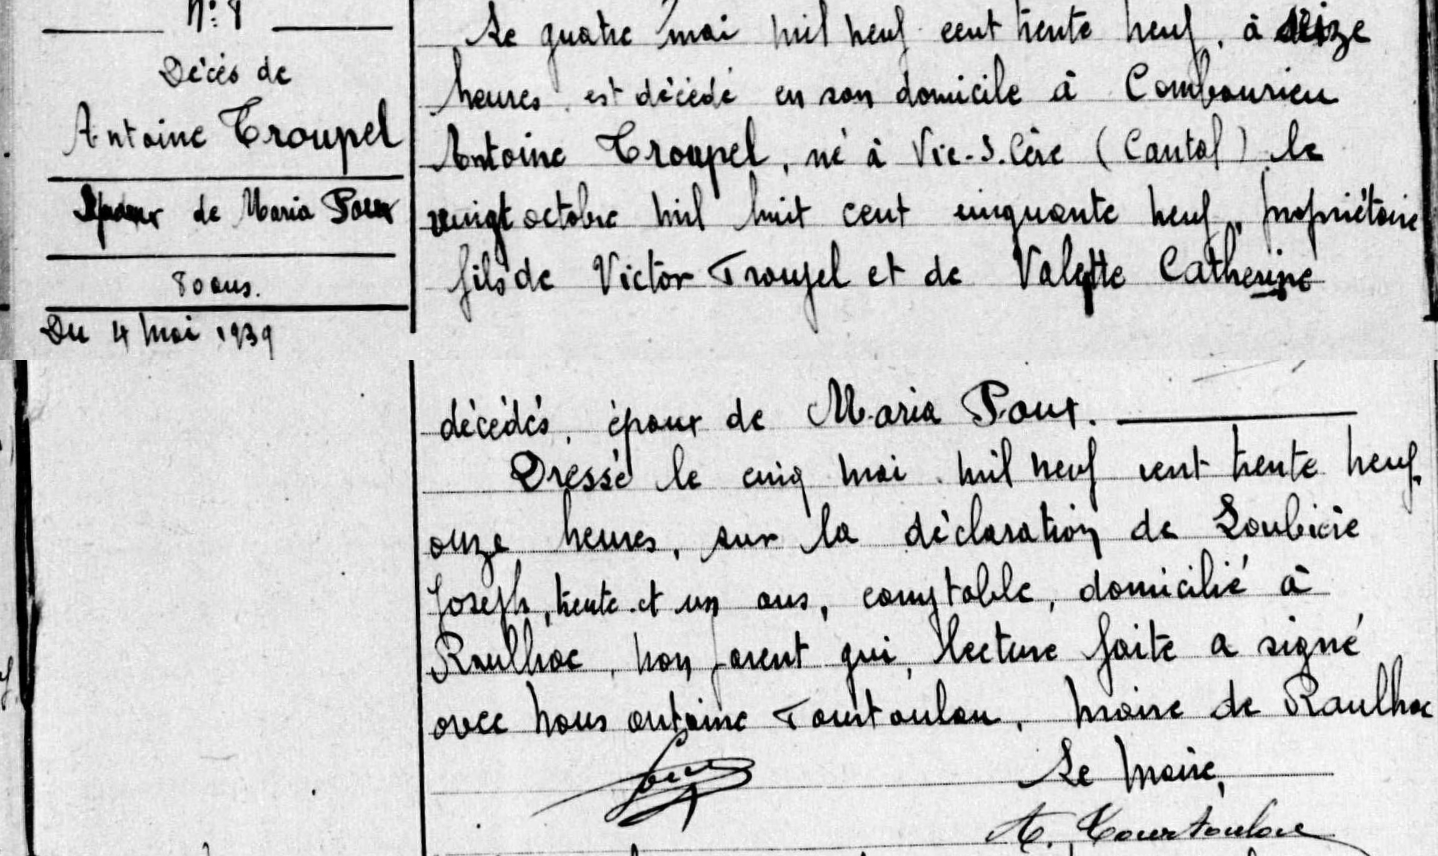 N° 8
Décès de
Antoine Troupel
Epoux de Maria Poux
80 ans.
Du 4 mai 1939
Le quatre mai mil neuf cent trente neuf, à seize
heures est décédé en son domicile à Combourieu
Antoine Troupel, né à Vic-S.Cère (Cantal) le
vingt octobre mil huit cent cinquante neuf, propriétaire
fils de Victor Troupel et de Valette Catherine
décédés, époux de Maria Poux.
Dressé le cinq mai mil neuf cent trente neuf,
onze heures, sur la déclaration de Loubière
Joseph, trente et un ans, comptable, domicilié à
Raulhac, non parent qui, lecture faite a signé
avec nous antoine Tourtoulou, maire de Raulhac
Le Maire,
A. Tourtoulou